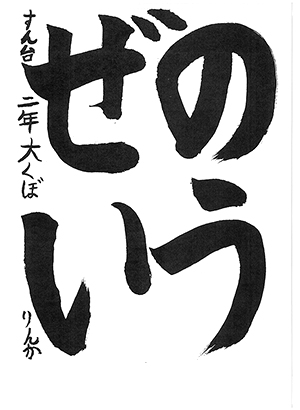 のう
ぜい
すん台 二年 大くぼ りんか